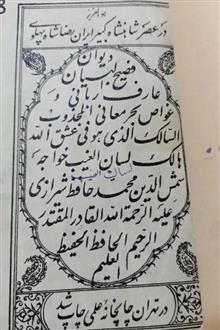 هو العزیز
در عصر شاهنشاه کبیر ایران رضا شاه پهلوی
دیوان
فصیح اللسان
عارف ربانی و
غواص بحر معانی المجذوب
السالک الذی هو فی عشق الله
هالک لسان الغیب خواجه
شمس الدین محمد حافظ شیرازی
علیه الرحمة الله القادر المقتدر
الرحیم الحافظ الحفیظ
العلیم
در تهران چاپخانه علمی چاپ شد